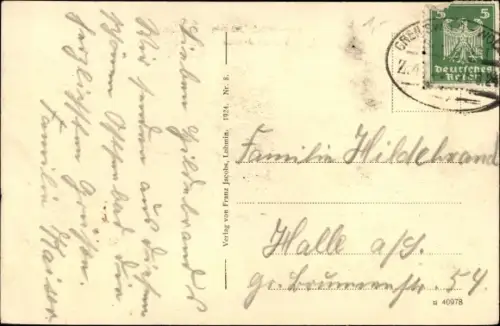 Lieben Hildebrands
Wir senden aus diesem
schönen Ostseebad die
herzlichsten Grüße.
Familie Kaiser
Verlag von Franz Jacobs, 1924. Nr. 8.
5 5
Deutsches
Reich
Familie Hildebrand
Halle a/S.
gr. Brunnenstr. 54.
a 40978